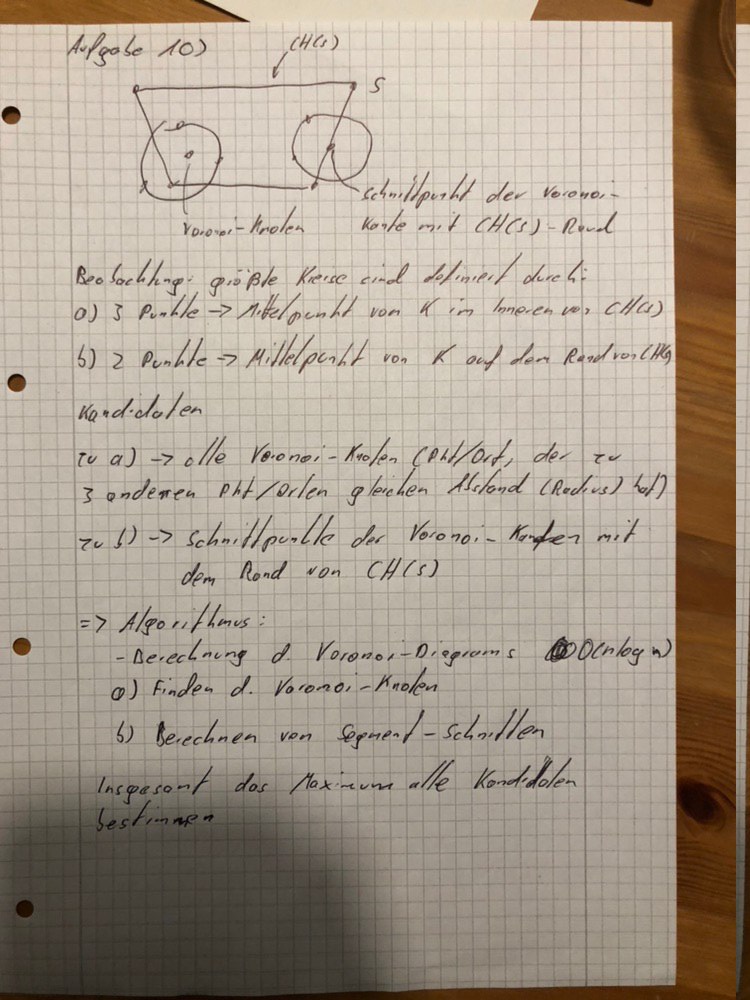 Aufgabe 10)
CH(S)
S
Schnittpunkt der Voronoi-
Voronoi-Knoten
Kante mit CH(S)-Rand
Beobachtung: größte Kreise sind definiert durch:
a) 3 Punkte -> Mittelpunkt von K im Inneren von CH(S)
b) 2 Punkte -> Mittelpunkt von K auf dem Rand von CH(S)
Kandidaten
zu a) -> alle Voronoi-Knoten (Pkt/Ort, der zu
3 anderen Pkt/Orten gleichen Abstand (Radius) hat)
zu b) -> Schnittpunkte der Voronoi-Kanten mit
dem Rand von CH(S)
=> Algorithmus:
- Berechnung d. Voronoi-Diagrams O(n log n)
a) Finden d. Voronoi-Knoten
b) Berechnen von Segment-Schnitten
Insgesamt das Maximum alle Kandidaten
bestimmen